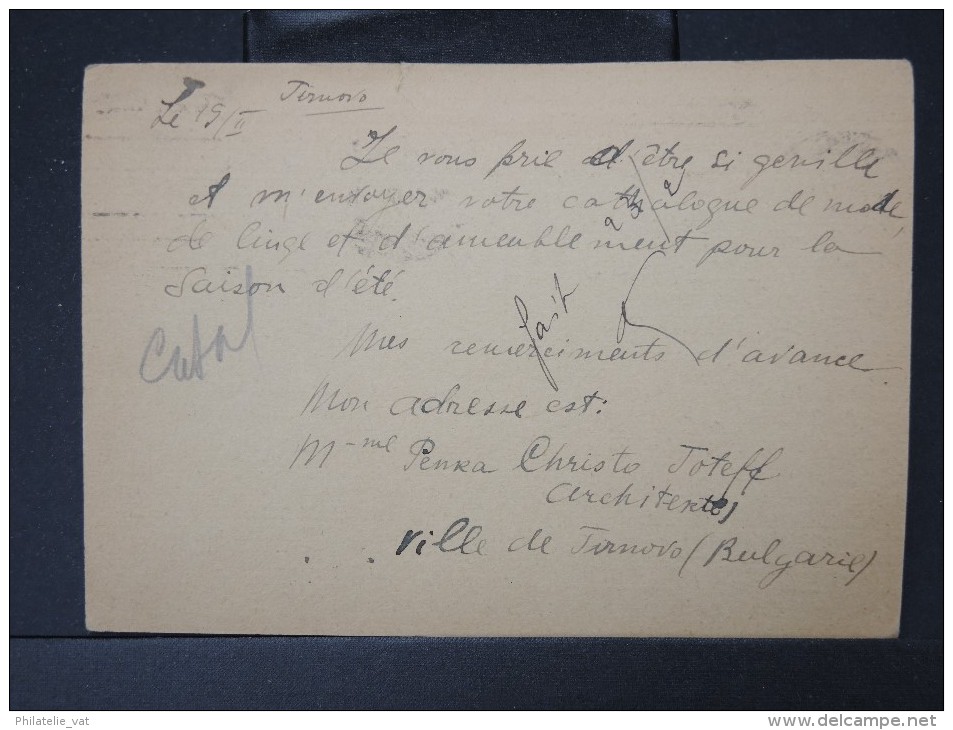 Le 19/II Tirnovo
Je vous prie d'être si gentille
et m'envoyer votre cathalogue de mode
de linge et d'ameublement pour la
saison d'été.
fait
Mes remerciments d'avance.
Mon adresse est:
M-me Penka Christo Toteff
Architekte
ville de Tirnovo (Bulgarie)
Philatelie_vat
http://www.delcampe.net